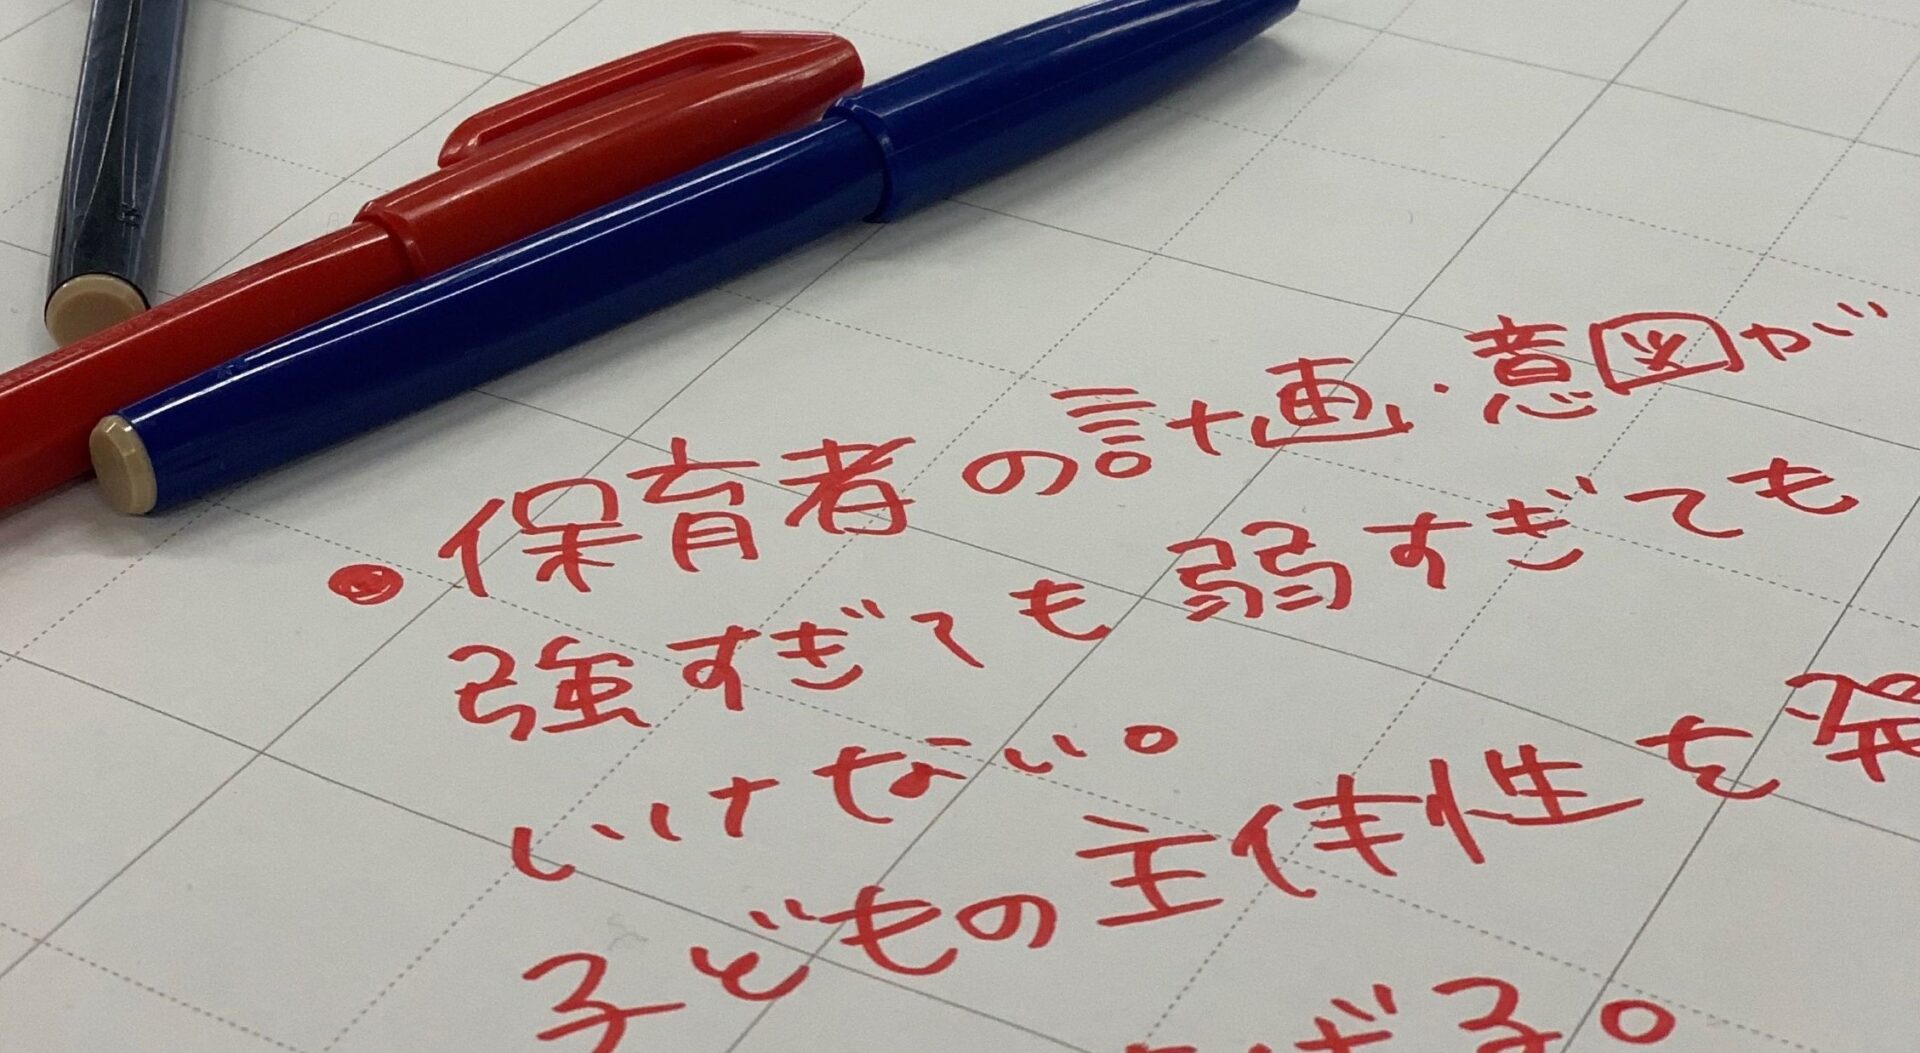 ●保育者の計画・意図が
強すぎても弱すぎても
いけない。
子どもの主体性を発
げる。